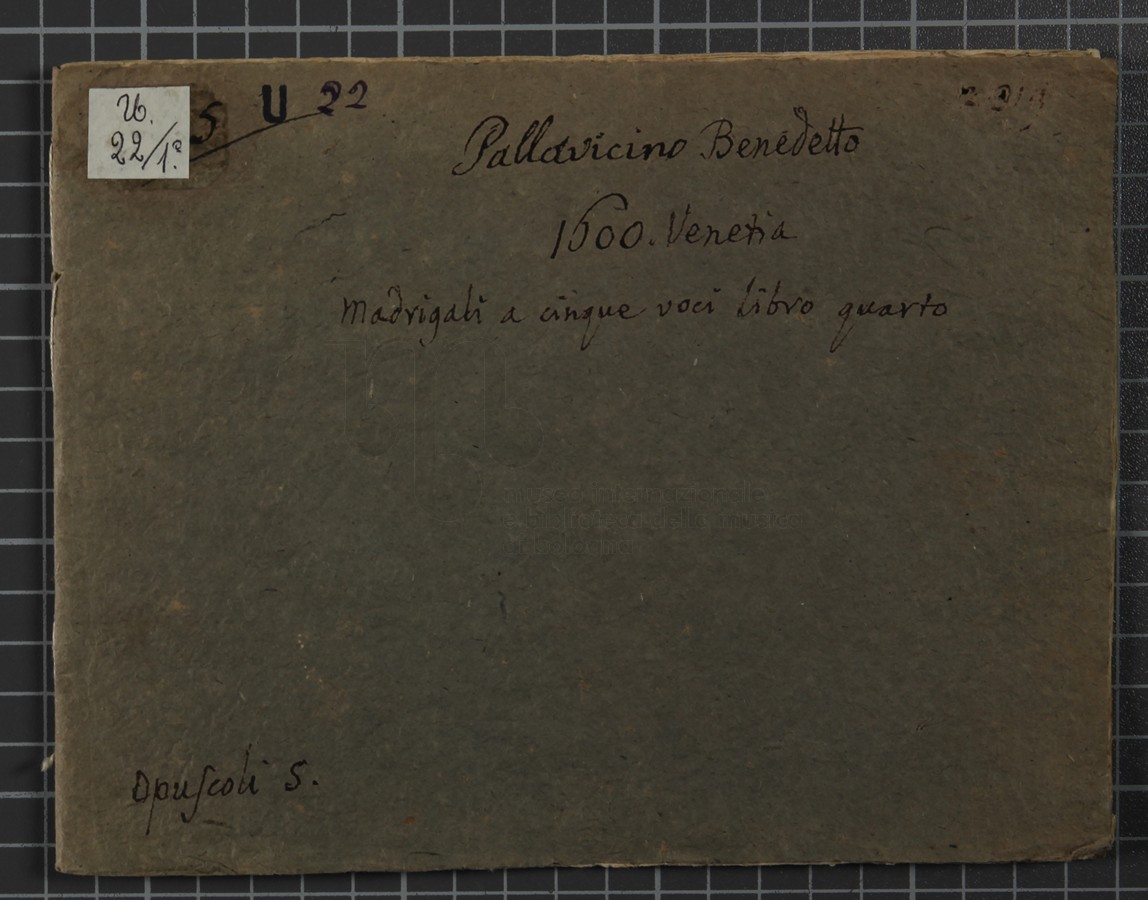 U.
22/1ª
5
U 22
Pallavicino Benedetto
1600. Venetia
Madrigali a cinque voci libro quarto
museo internazionale
e biblioteca della musica
di bologna
Opuscoli 5.